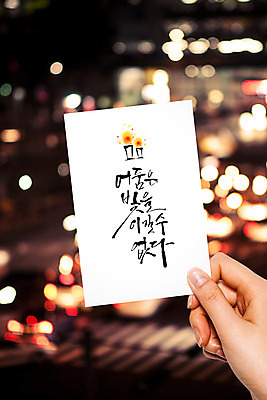 어둠은
빛을
이길 수
없다